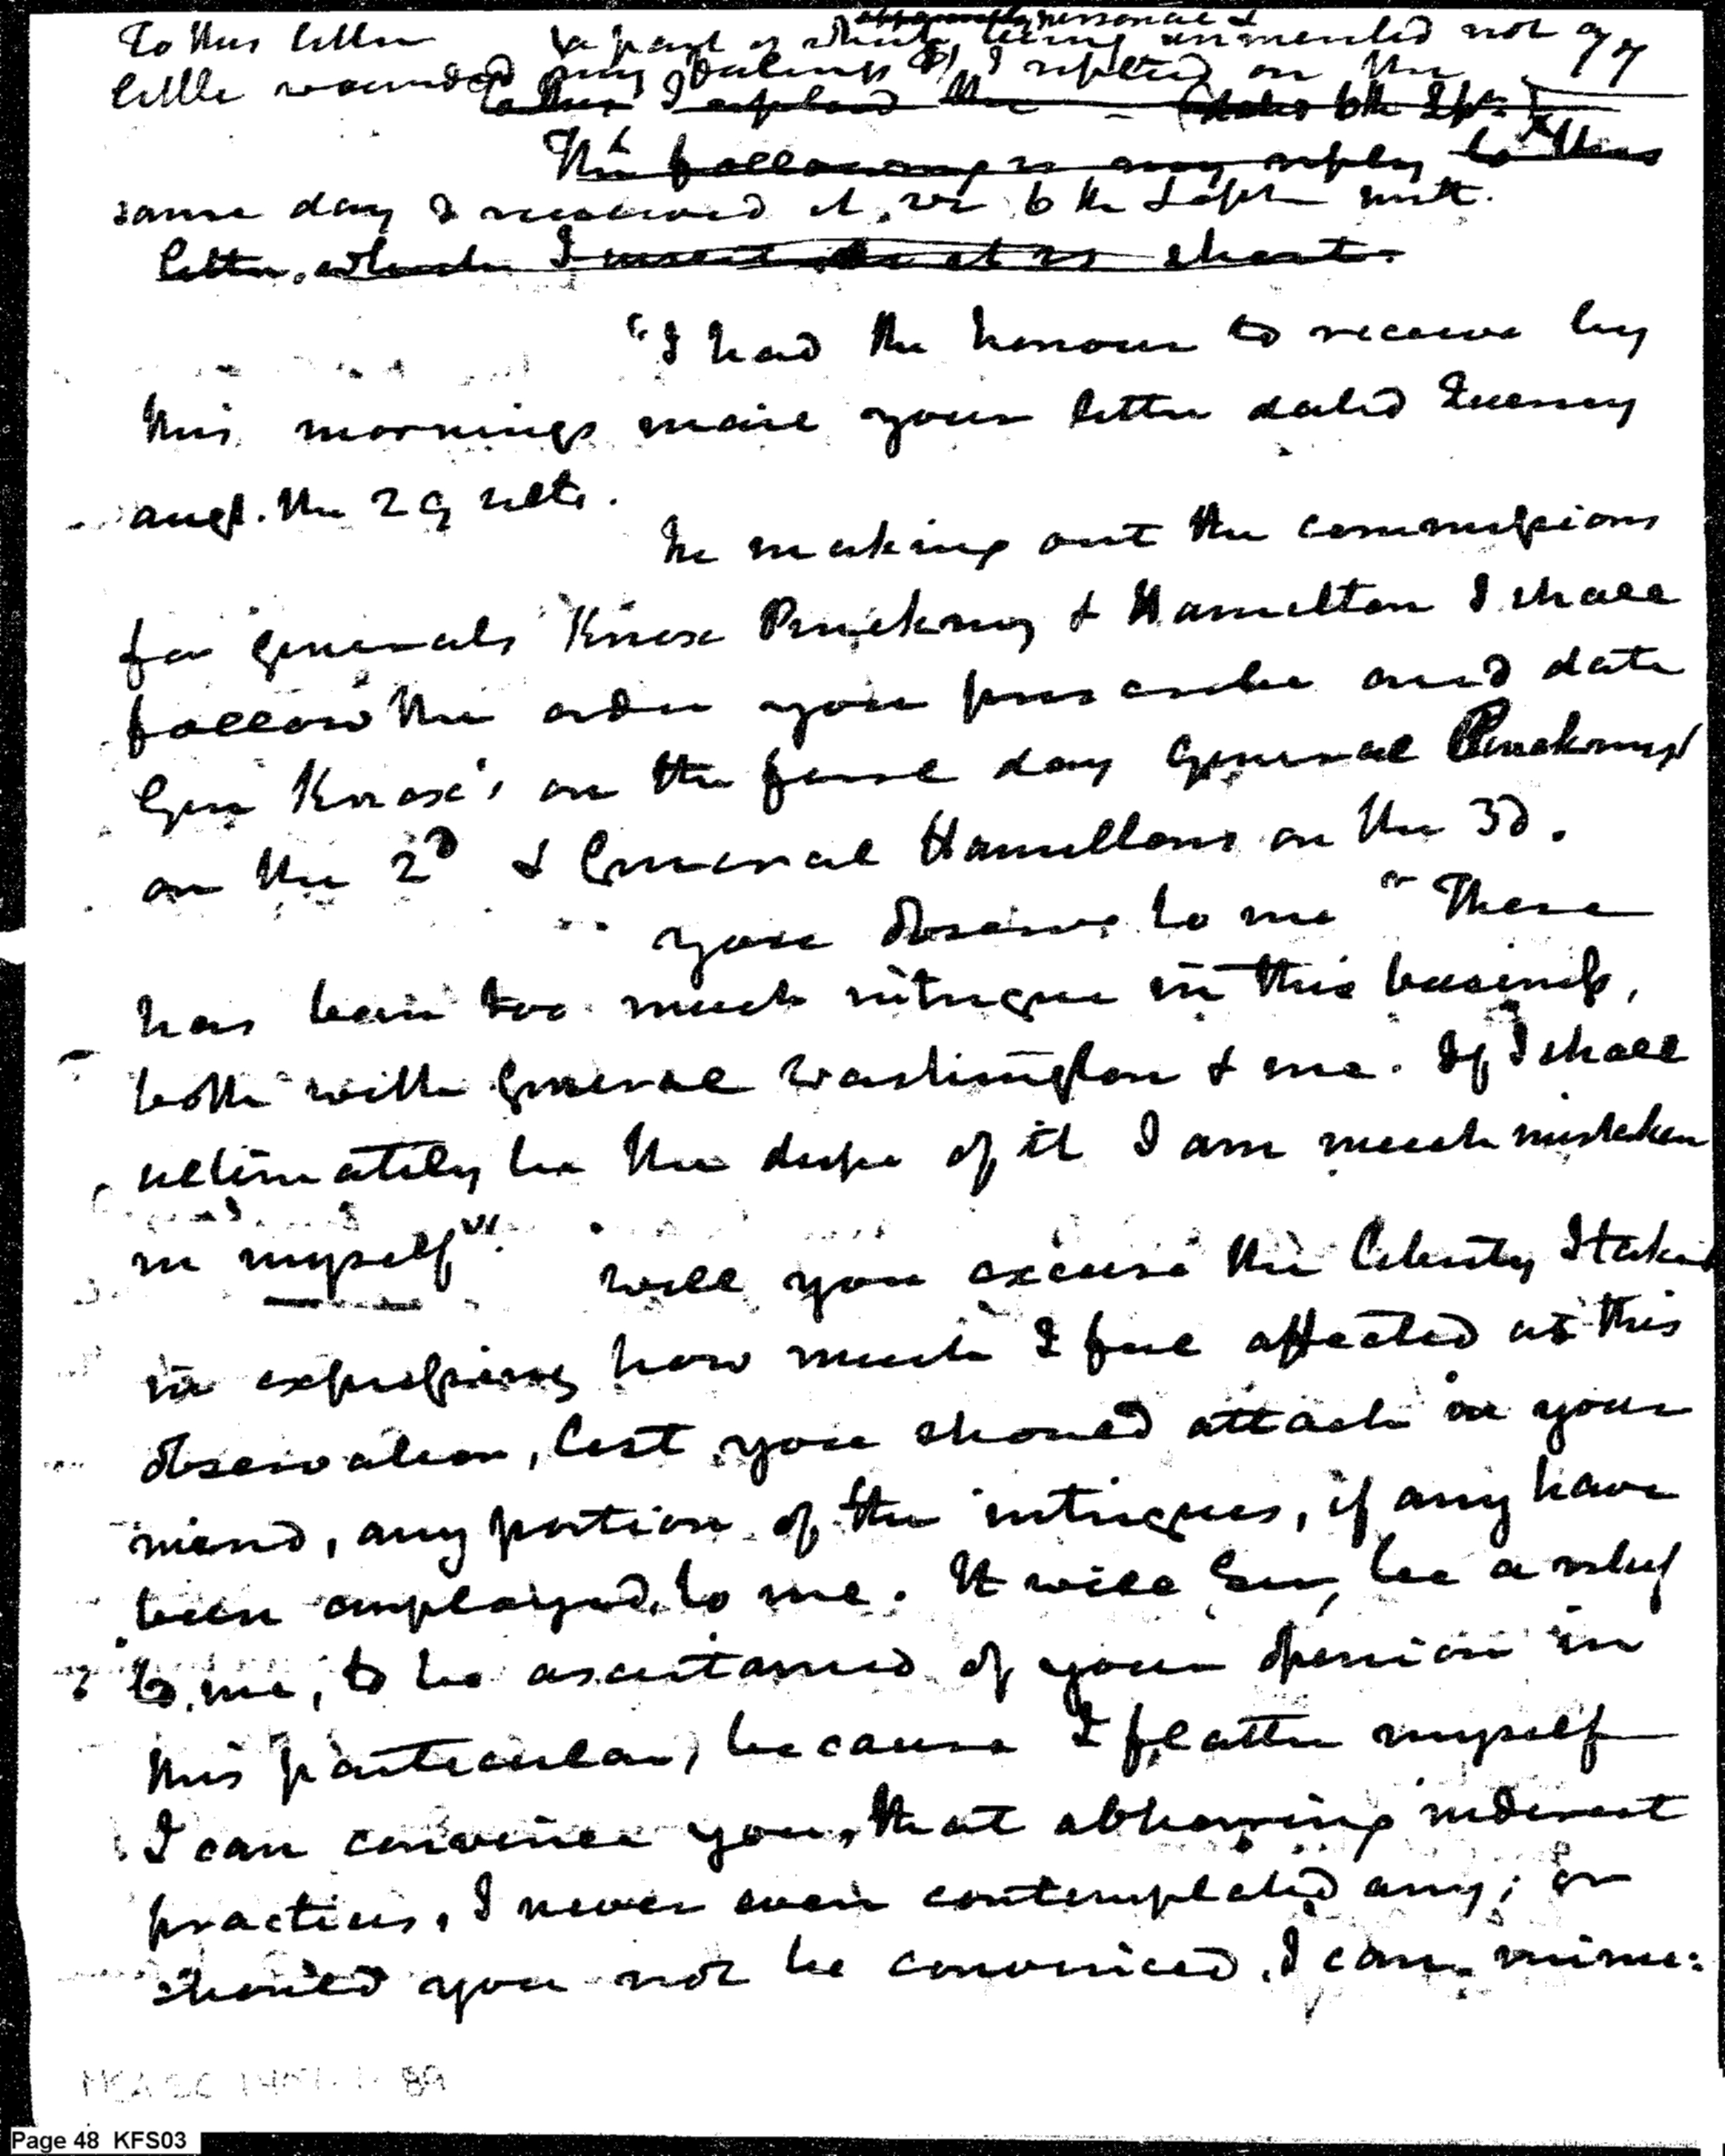 To this letter (a part of which ~~apparently~~ personal & being unmerited not a
little wounded my feelings) I replied on the
~~To this I replied the — (dated 6th Sepr.)~~
~~The following is my reply to this~~
same day I received it, viz 6th Sept inst.
~~letter, which I insert as it is short.~~
"I had the honour to receive by
this mornings mail your letter dated Quincy
augt. the 29 ulto.
In making out the commissions
for generals Knox Pinckney & Hamilton I shall
follow the order you prescribe and date
Gen Knox's on the first day General Pinckneys
on the 2d & General Hamiltons on the 3d.
you observe to me "There
has been too much intrigue in this business,
both with General Washington & me. If I shall
ultimately be the dupe of it I am much mistaken
in myself". will you excuse the liberty I take
in expressing how much I feel affected at this
observation, lest you should attach in your
mind, any portion of the intrigues, if any have
been employed, to me. It will Sir, be a relief
to me, to be ascertained of your opinion in
this particular, because I flatter myself
I can convince you, that abhorring indirect
practices, I never even contemplated any; or
should you not be convinced, I can, mime:
Page 48 KFS03